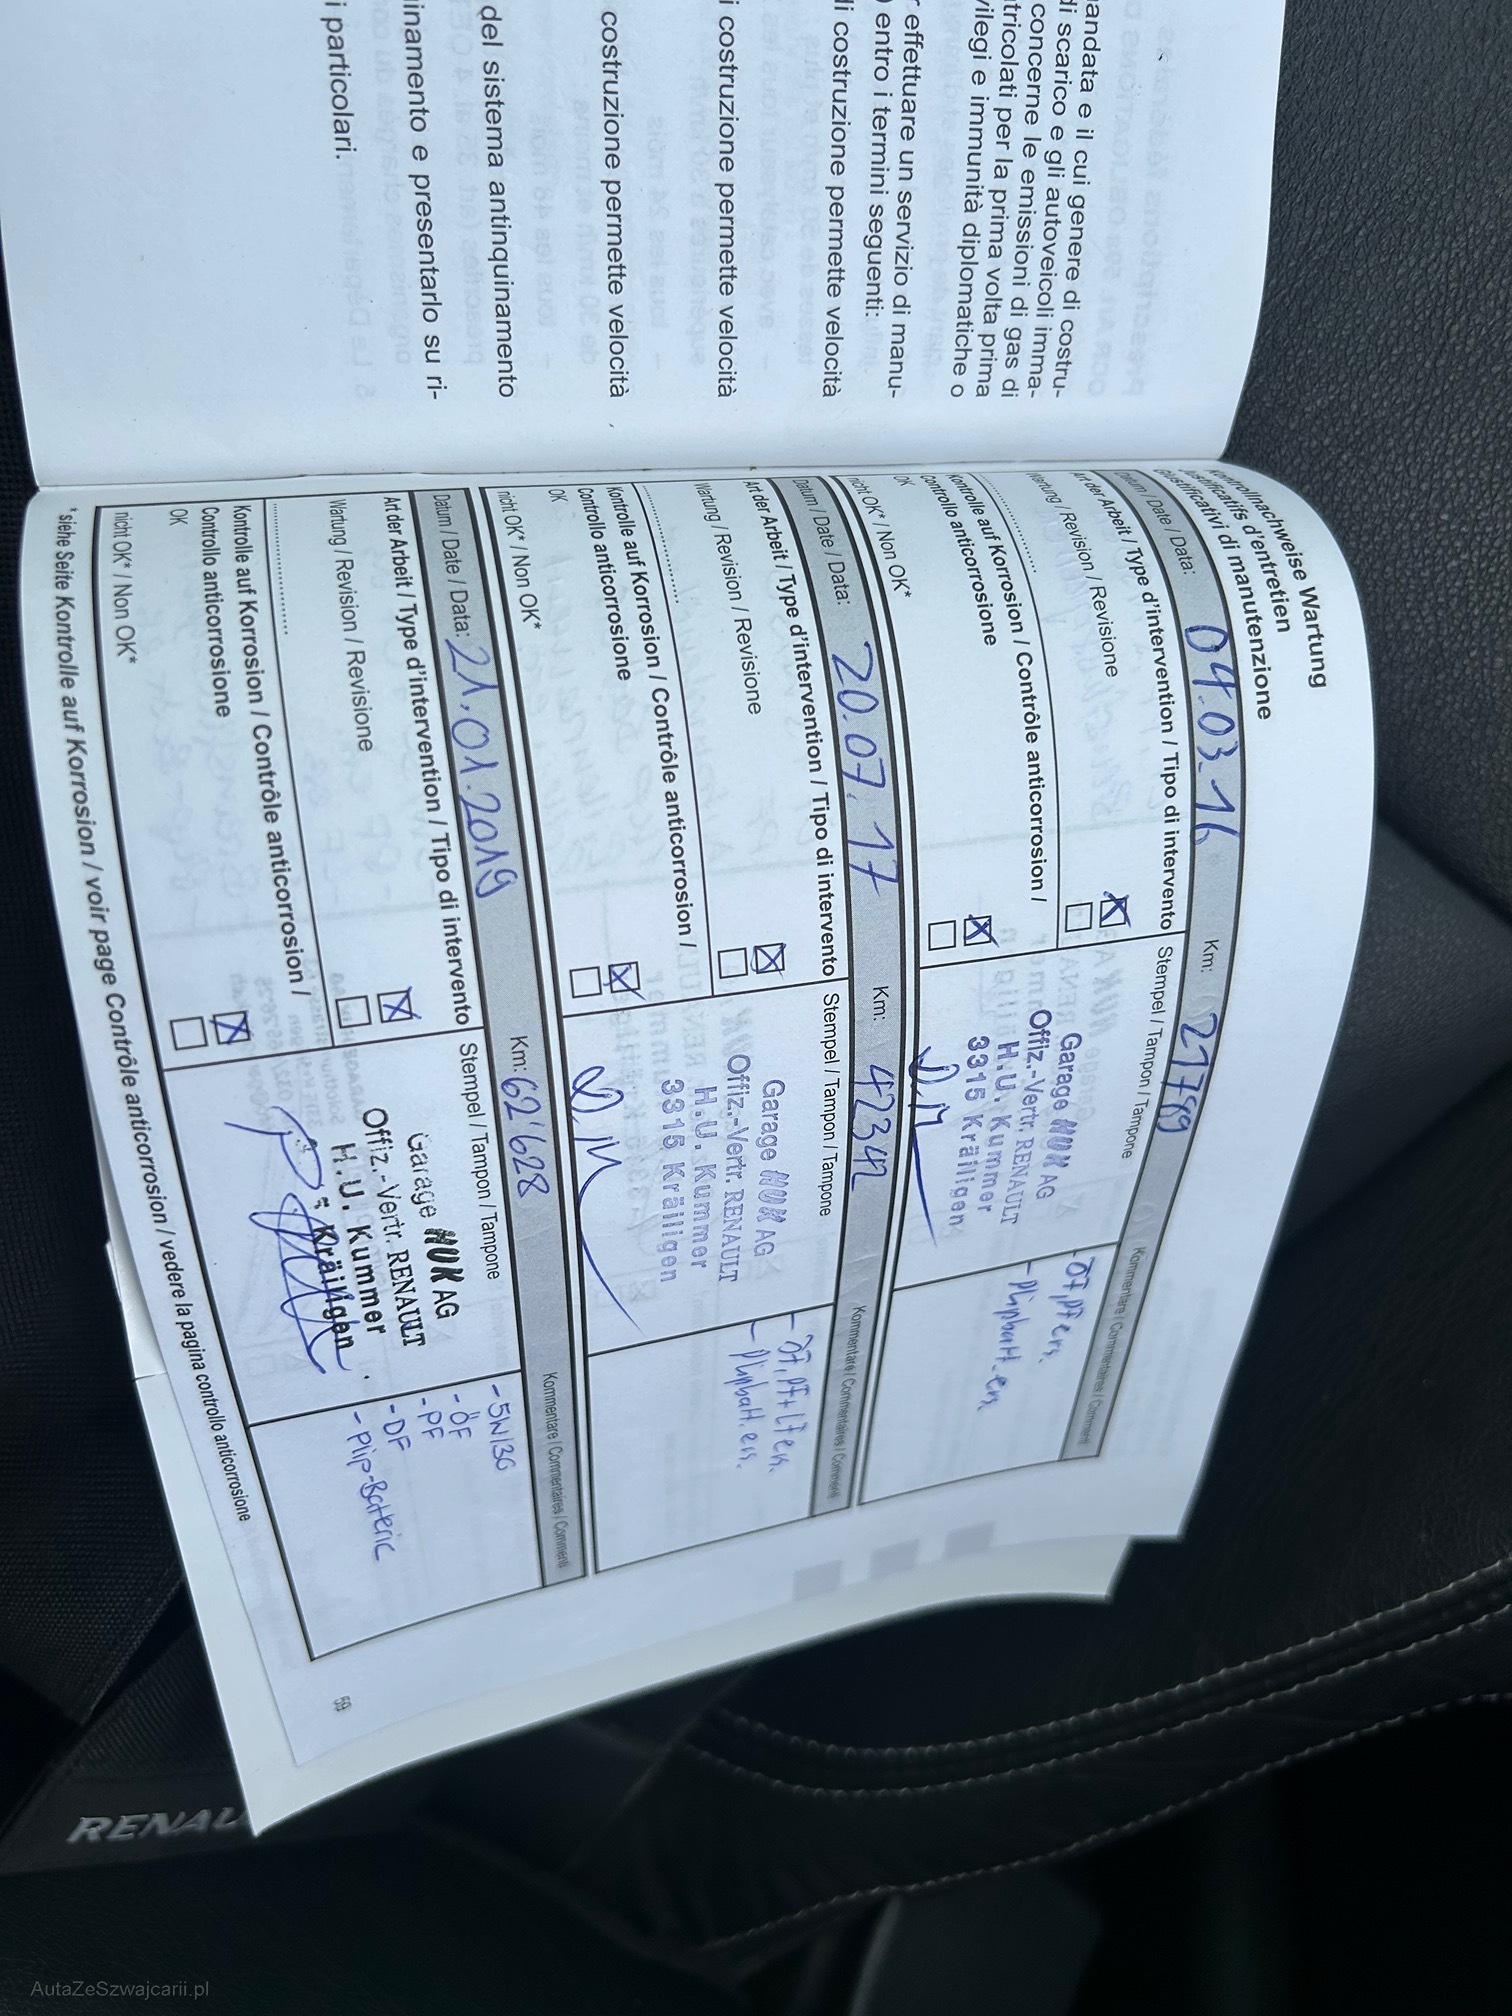 andata e il cui genere di costru-
di scarico e gli autoveicoli imma-
concerne le emissioni di gas di
tricolati per la prima volta prima
vilegi e immunità diplomatiche o
r effettuare un servizio di manu-
) entro i termini seguenti:
di costruzione permette velocità
i costruzione permette velocità
costruzione permette velocità
del sistema antinquinamento
inamento e presentarlo su ri-
i particolari.
Kontrollnachweise Wartung
Justificatifs d'entretien
Giustificativi di manutenzione
Datum / Date / Data: 04.03.16 Km: 21789
Art der Arbeit / Type d'intervention / Tipo di intervento Stempel / Tampon / Tampone Kommentare / Commentaires / Commenti
Wartung / Revision / Revisione
Kontrolle auf Korrosion / Contrôle anticorrosion /
Controllo anticorrosione
OK
nicht OK* / Non OK*
Garage HUK AG
Offiz.-Vertr. RENAULT
H.U. Kummer
3315 Kräiligen
- ÖF, PF ers.
- Plipbatt. ers.
Datum / Date / Data: 20.07.17 Km: 42342
Art der Arbeit / Type d'intervention / Tipo di intervento Stempel / Tampon / Tampone Kommentare / Commentaires / Commenti
Wartung / Revision / Revisione
Kontrolle auf Korrosion / Contrôle anticorrosion /
Controllo anticorrosione
OK
nicht OK* / Non OK*
Garage HUK AG
Offiz.-Vertr. RENAULT
H.U. Kummer
3315 Kräiligen
- ÖF, PF + LF ers.
- Plipbatt. ers.
Datum / Date / Data: 21.01.2019 Km: 62'628
Art der Arbeit / Type d'intervention / Tipo di intervento Stempel / Tampon / Tampone Kommentare / Commentaires / Commenti
Wartung / Revision / Revisione
Kontrolle auf Korrosion / Contrôle anticorrosion /
Controllo anticorrosione
OK
nicht OK* / Non OK*
Garage HUK AG
Offiz.-Vertr. RENAULT
H.U. Kummer
Kräiligen
- 5W30
- ÖF
- PF
- DF
- Plip-Batterie
* siehe Seite Kontrolle auf Korrosion / voir page Contrôle anticorrosion / vedere la pagina controllo anticorrosione
59
RENAU
AutaZeSzwajcarii.pl